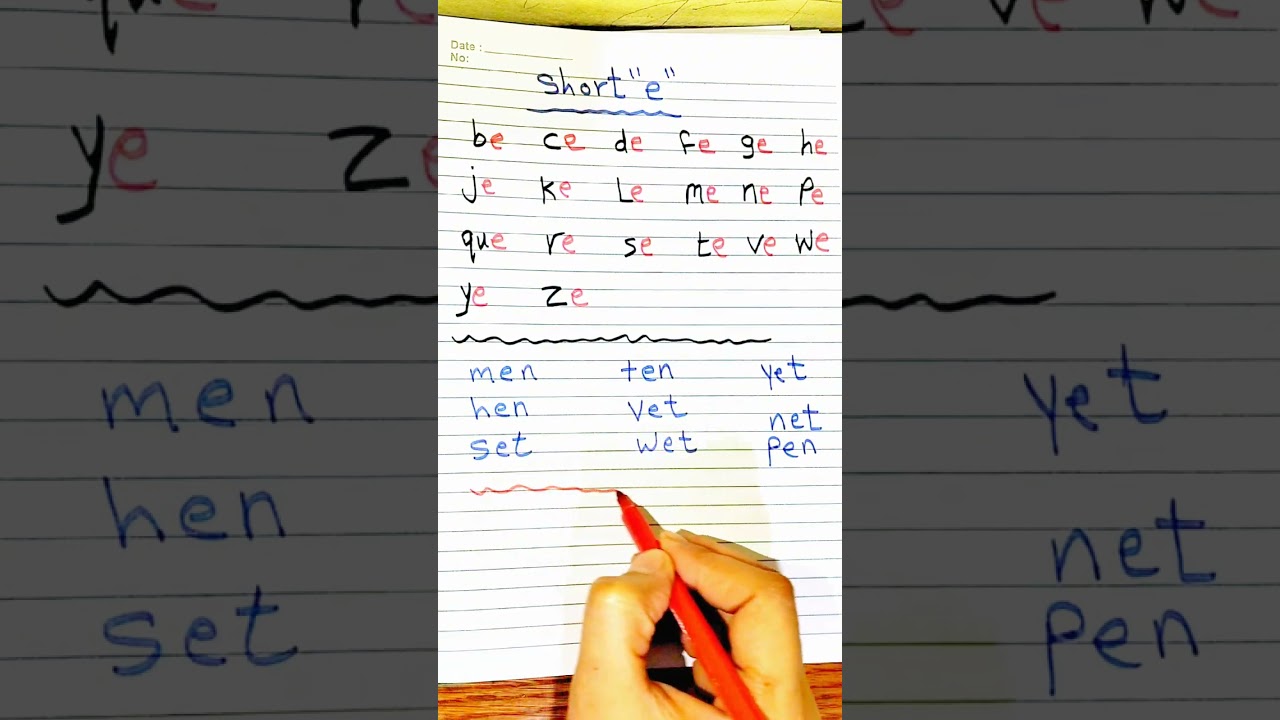 Date :
No:
Short "e"
be ce de fe ge he
je ke Le me ne Pe
que re se te ve we
ye ze
men ten yet
hen vet net
set wet pen